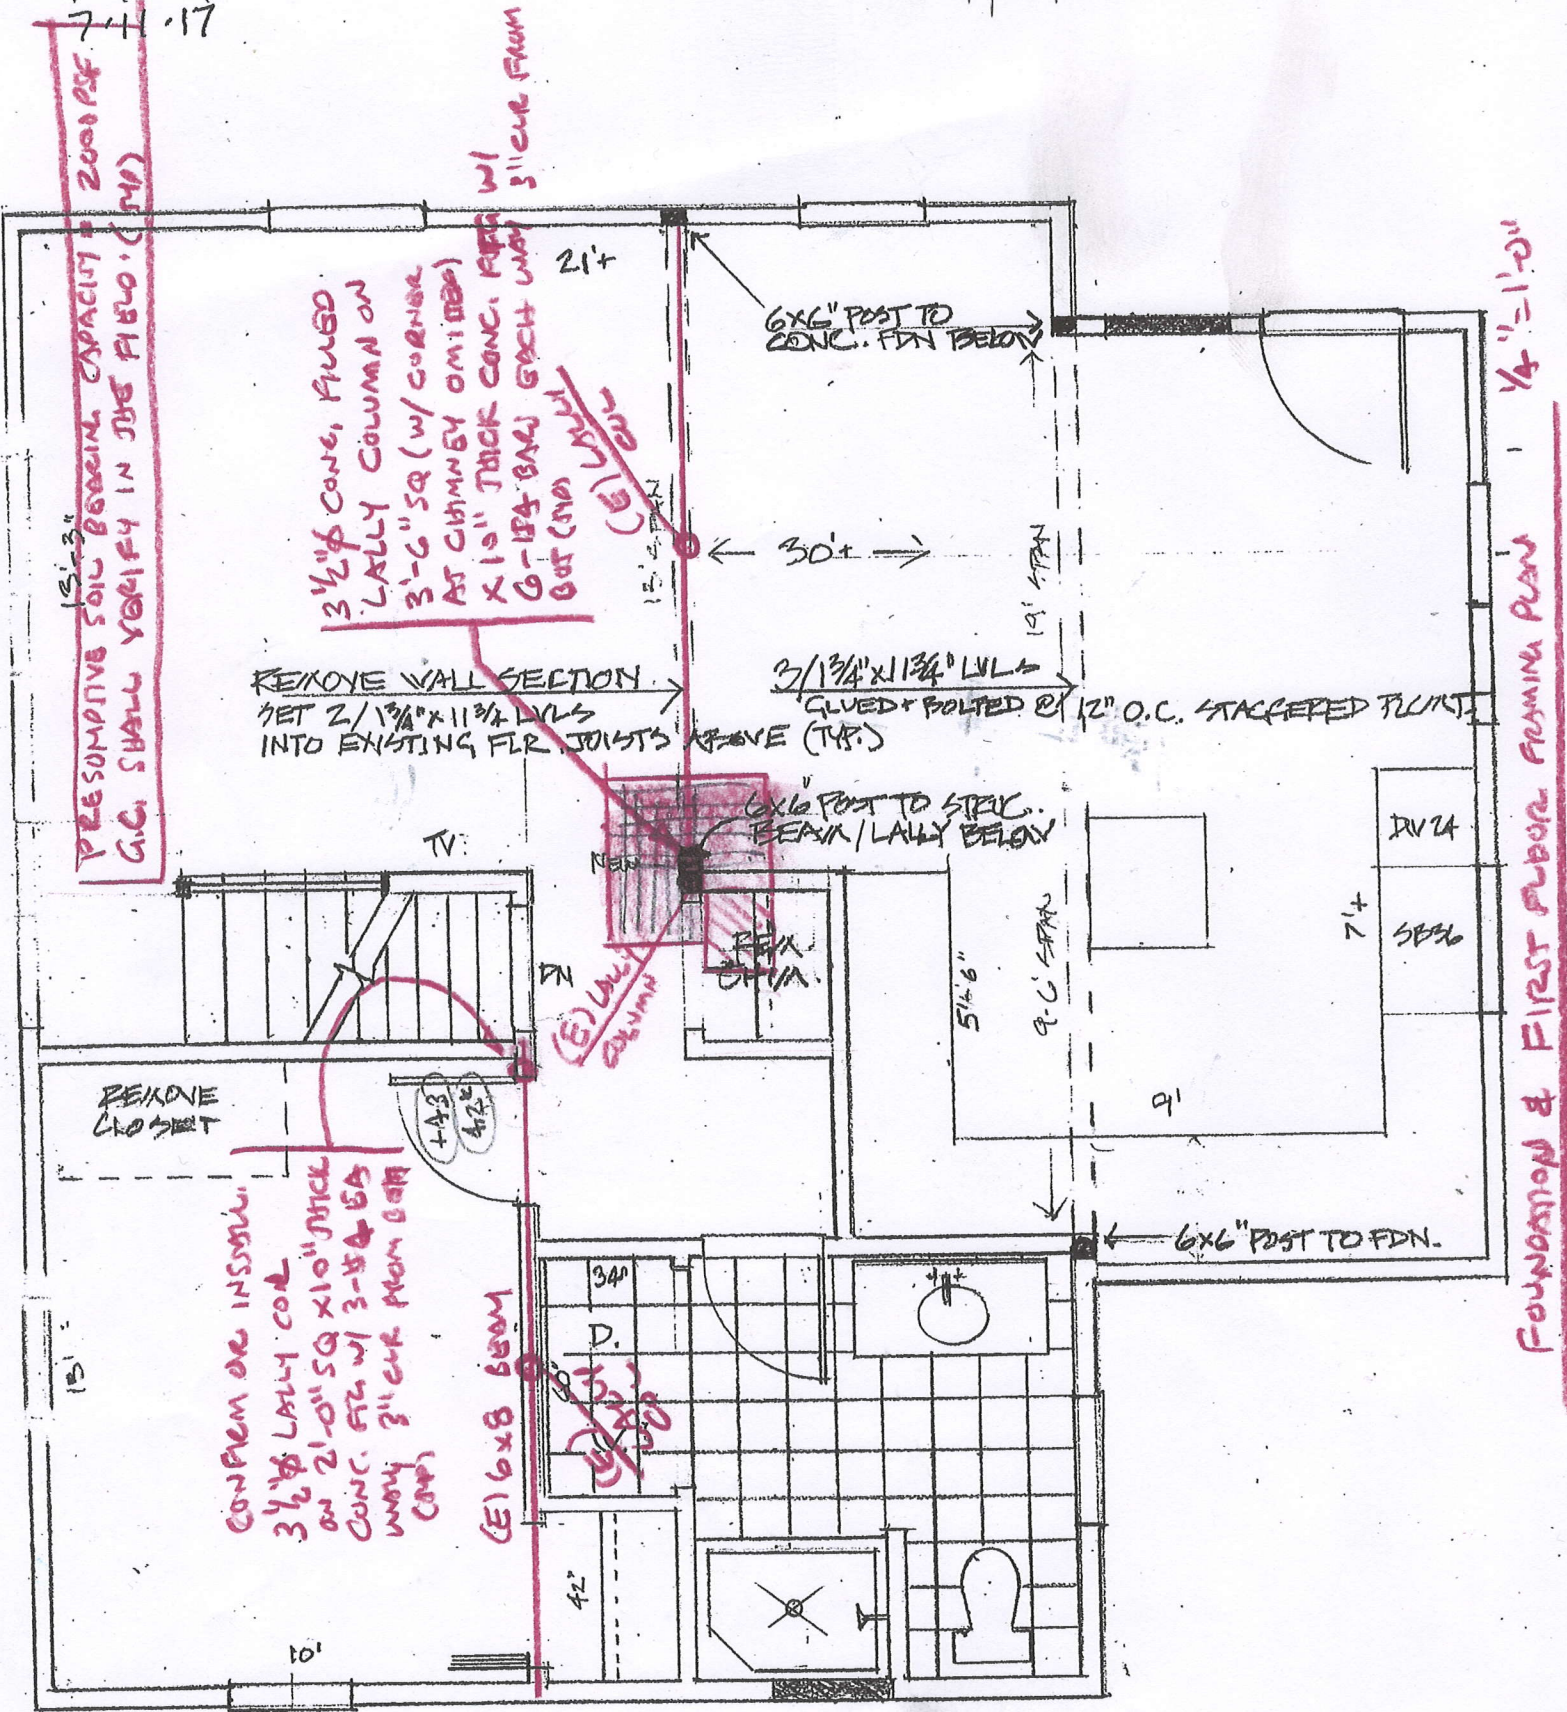 7·11·17
PRESUMPTIVE SOIL BEARING CAPACITY = 2000 PSF.
G.C. SHALL VERIFY IN THE FIELD. (TYP)
3 1/2"ø CONC. FILLED
LALLY COLUMN ON
3'-6" SQ (W/ CORNER
AT CHIMNEY OMITTED)
X 10" THICK CONC. FTG W/
6-#4 BARS EACH WAY 3" CLR FROM
BOT (TYP)
(E) LALLY
COL
21'+
6X6" POST TO
CONC. FDN BELOW
1/4" = 1'-0"
13'-3"
← 30'+ →
19' SPAN
REMOVE WALL SECTION
SET 2/1 3/4" X 11 3/4 LVLS
INTO EXISTING FLR. JOISTS ABOVE (TYP.)
3/1 3/4" X 11 3/4" LVLS
GLUED + BOLTED @ 12" O.C. STAGGERED
6X6" POST TO STRUC.
BEAM / LALLY BELOW
NEW
TV
DN
(E) LALLY
COLUMN
DW 24
SB36
7'+
5'-6"
9'-6" SPAN
9'
REMOVE
CLOSET
+43
42"
6X6" POST TO FDN.
CONFIRM OR INSTALL
3 1/2"ø LALLY COL
ON 2'-0" SQ X 10" THICK
CONC. FTG W/ 3-#4 EA
WAY 3" CLR FROM BOTT
(TYP)
(E) 6x8 BEAM
34"
D.
13'
42"
10'
FOUNDATION & FIRST FLOOR FRAMING PLAN